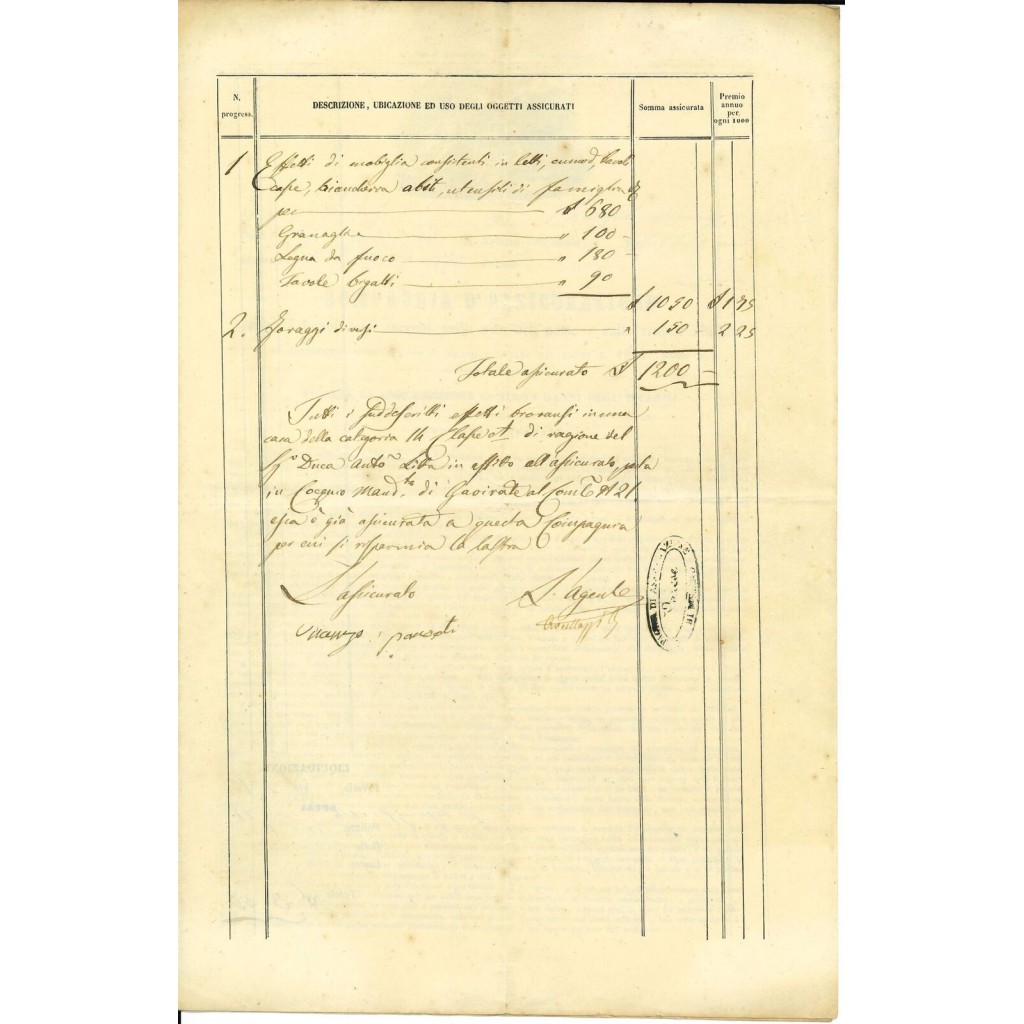 N. progress.
DESCRIZIONE, UBICAZIONE ED USO DEGLI OGGETTI ASSICURATI
Somma assicurata
Premio annuo per ogni 1000
1 Effetti di mobiglia consistenti in letti, comod, tavoli
Casse, biancheria abiti, utensili di famiglia
per £ 680
Granaglie " 100 -
Legna da fuoco " 180 -
Tavole bigatti " 90
£ 1050 £ 1 75
2. Foraggi diversi " 150 - 2 25
Totale assicurato £ 1200 -
Tutti i suddescritti effetti trovansi in una
casa della categoria Classe di ragione del
Sig.r Duca Anto. Litta in affitto all'assicurato, posta
in Mand.to di Gavirate al N 21.
essa è già assicurata a questa Compagnia
per cui si risparmia la lastra
L'assicurato L'Agente